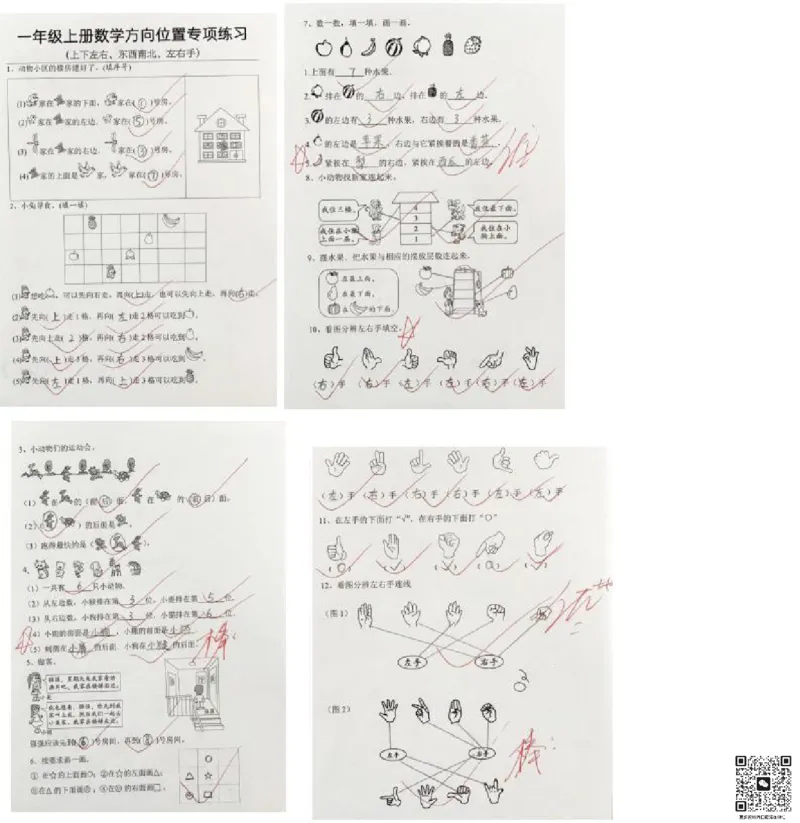 一年级上册数学方向位置专项练习
(上下左右、东西南北、左右手)
1、动物小区的楼房建好了。(填序号)
(1) 家在 家的下面, 家在( 1 )号房。
(2) 家在 家的左边, 家在( 5 )号房。
(3) 家在 家的右边, 家在( 3 )号房。
(4) 家的上面是 家, 家在( 7 )号房。
2、小兔寻食。(填一填)
(1) 想吃 , 可以先向右走, 再向(上)走, 也可以先向上走, 再向(右)走。
(2) 先向(上)走1格, 再向(左)走2格可以吃到 。
(3) 先向上走(2)格, 再向(右)走2格可以吃到 。
(4) 先向(上)走3格, 再向(右)走3格可以吃到 。
(5) 先向(左)走1格, 再向(上)走3格可以吃到 。
7、数一数, 填一填, 画一画。
1.上面有 7 种水果。
2. 排在 的 右 边, 排在 的 左 边。
3. 的左边有 3 种水果, 右边有 3 种水果。
4. 的左边是 苹果 , 右边与它紧挨着的是 香蕉 。
5. 紧挨在 梨 的右边, 紧挨在 西瓜 的左边。
8、小动物找新家连起来。
我住三楼。
我住最下面。
我住在小猴上面一层。
我住在小狗上面。
4
3
2
1
9、摆水果。把水果与相应的摆放层数连起来。
在最上面。
在最下面。
在 的下面
10、看图分辨左右手填空。
(右)手 (右)手 (左)手 (左)手 (右)手 (左)手
3、小动物们的运动会。
(1) 在 的( 后)面, 在 的( 后)面。
(2)( )的后面是 。
(3) 跑得最快的是( )。
4、
(1) 一共有 6 只小动物。
(2) 从左边数, 小猴排在第 3 位, 小鹿排在第 5 位。
(3) 从右边数, 小狗排在第 3 位, 小猫排在第 6 位。
5、做客。
强强应该先到( 6 )号房间, 再到( 5 )号房间。
6、按要求画一画。
① 在☆的上面画○; ②在☆的左面画△;
③在△的下面画◎; ④在◎的右面画□。
(左)手 (右)手 (右)手 (右)手 (左)手 (左)手
11、在左手的下面打“√”, 在右手的下面打“○”
12、看图分辨左右手连线
(图1)
左手
右手
(图2)
左手
右手
棒
棒